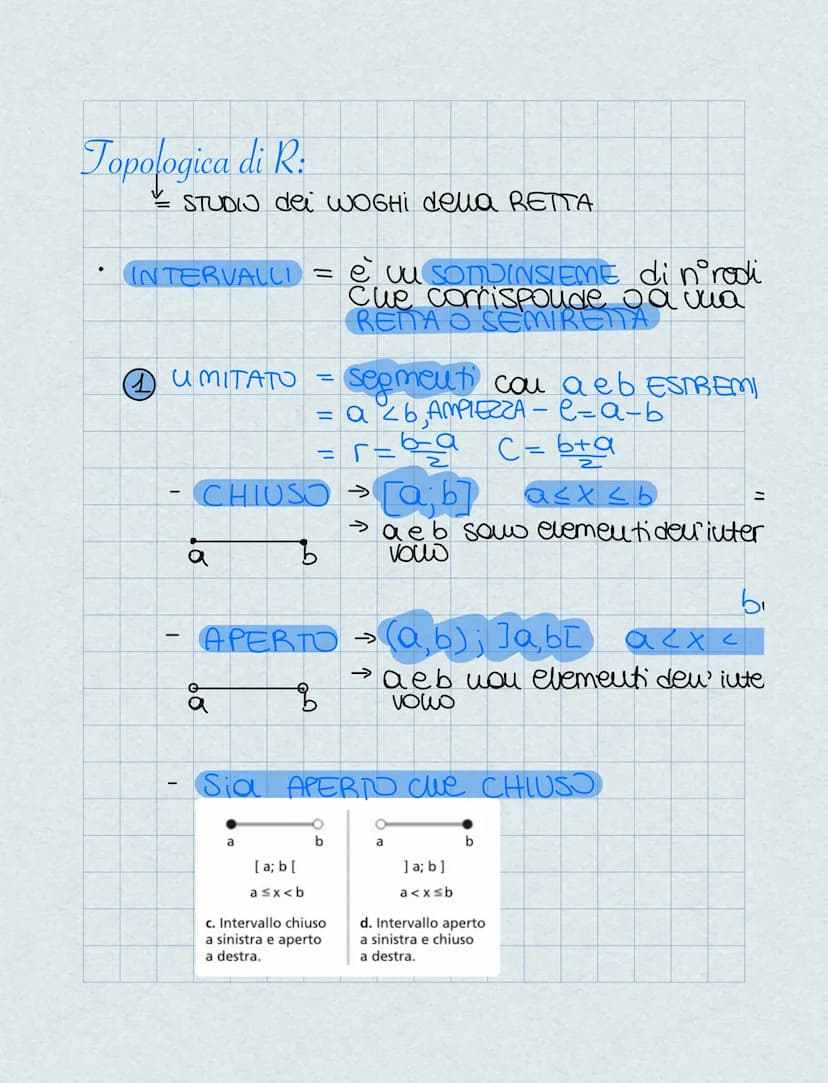 Topologica di R:
= STUDIO dei LUOGHI della RETTA
• INTERVALLI = è un SOTTOINSIEME di n° reali
che corrisponde o a una
RETTA O SEMIRETTA
1 LIMITATO = segmenti con a e b ESTREMI
= a < b, AMPIEZZA – e = a – b
= r = b-a/2 C = b+a/2
- CHIUSO → [a;b] a ≤ x ≤ b =
→ a e b sono elementi dell'inter
vallo
a b
b
- APERTO → (a,b); ]a,b[ a < x <
→ a e b non elementi dell' inte
vallo
a b
- Sia APERTO che CHIUSO
a b a b
[ a; b [ ] a; b ]
a ≤ x < b a < x ≤ b
c. Intervallo chiuso d. Intervallo aperto
a sinistra e aperto a sinistra e chiuso
a destra. a destra.